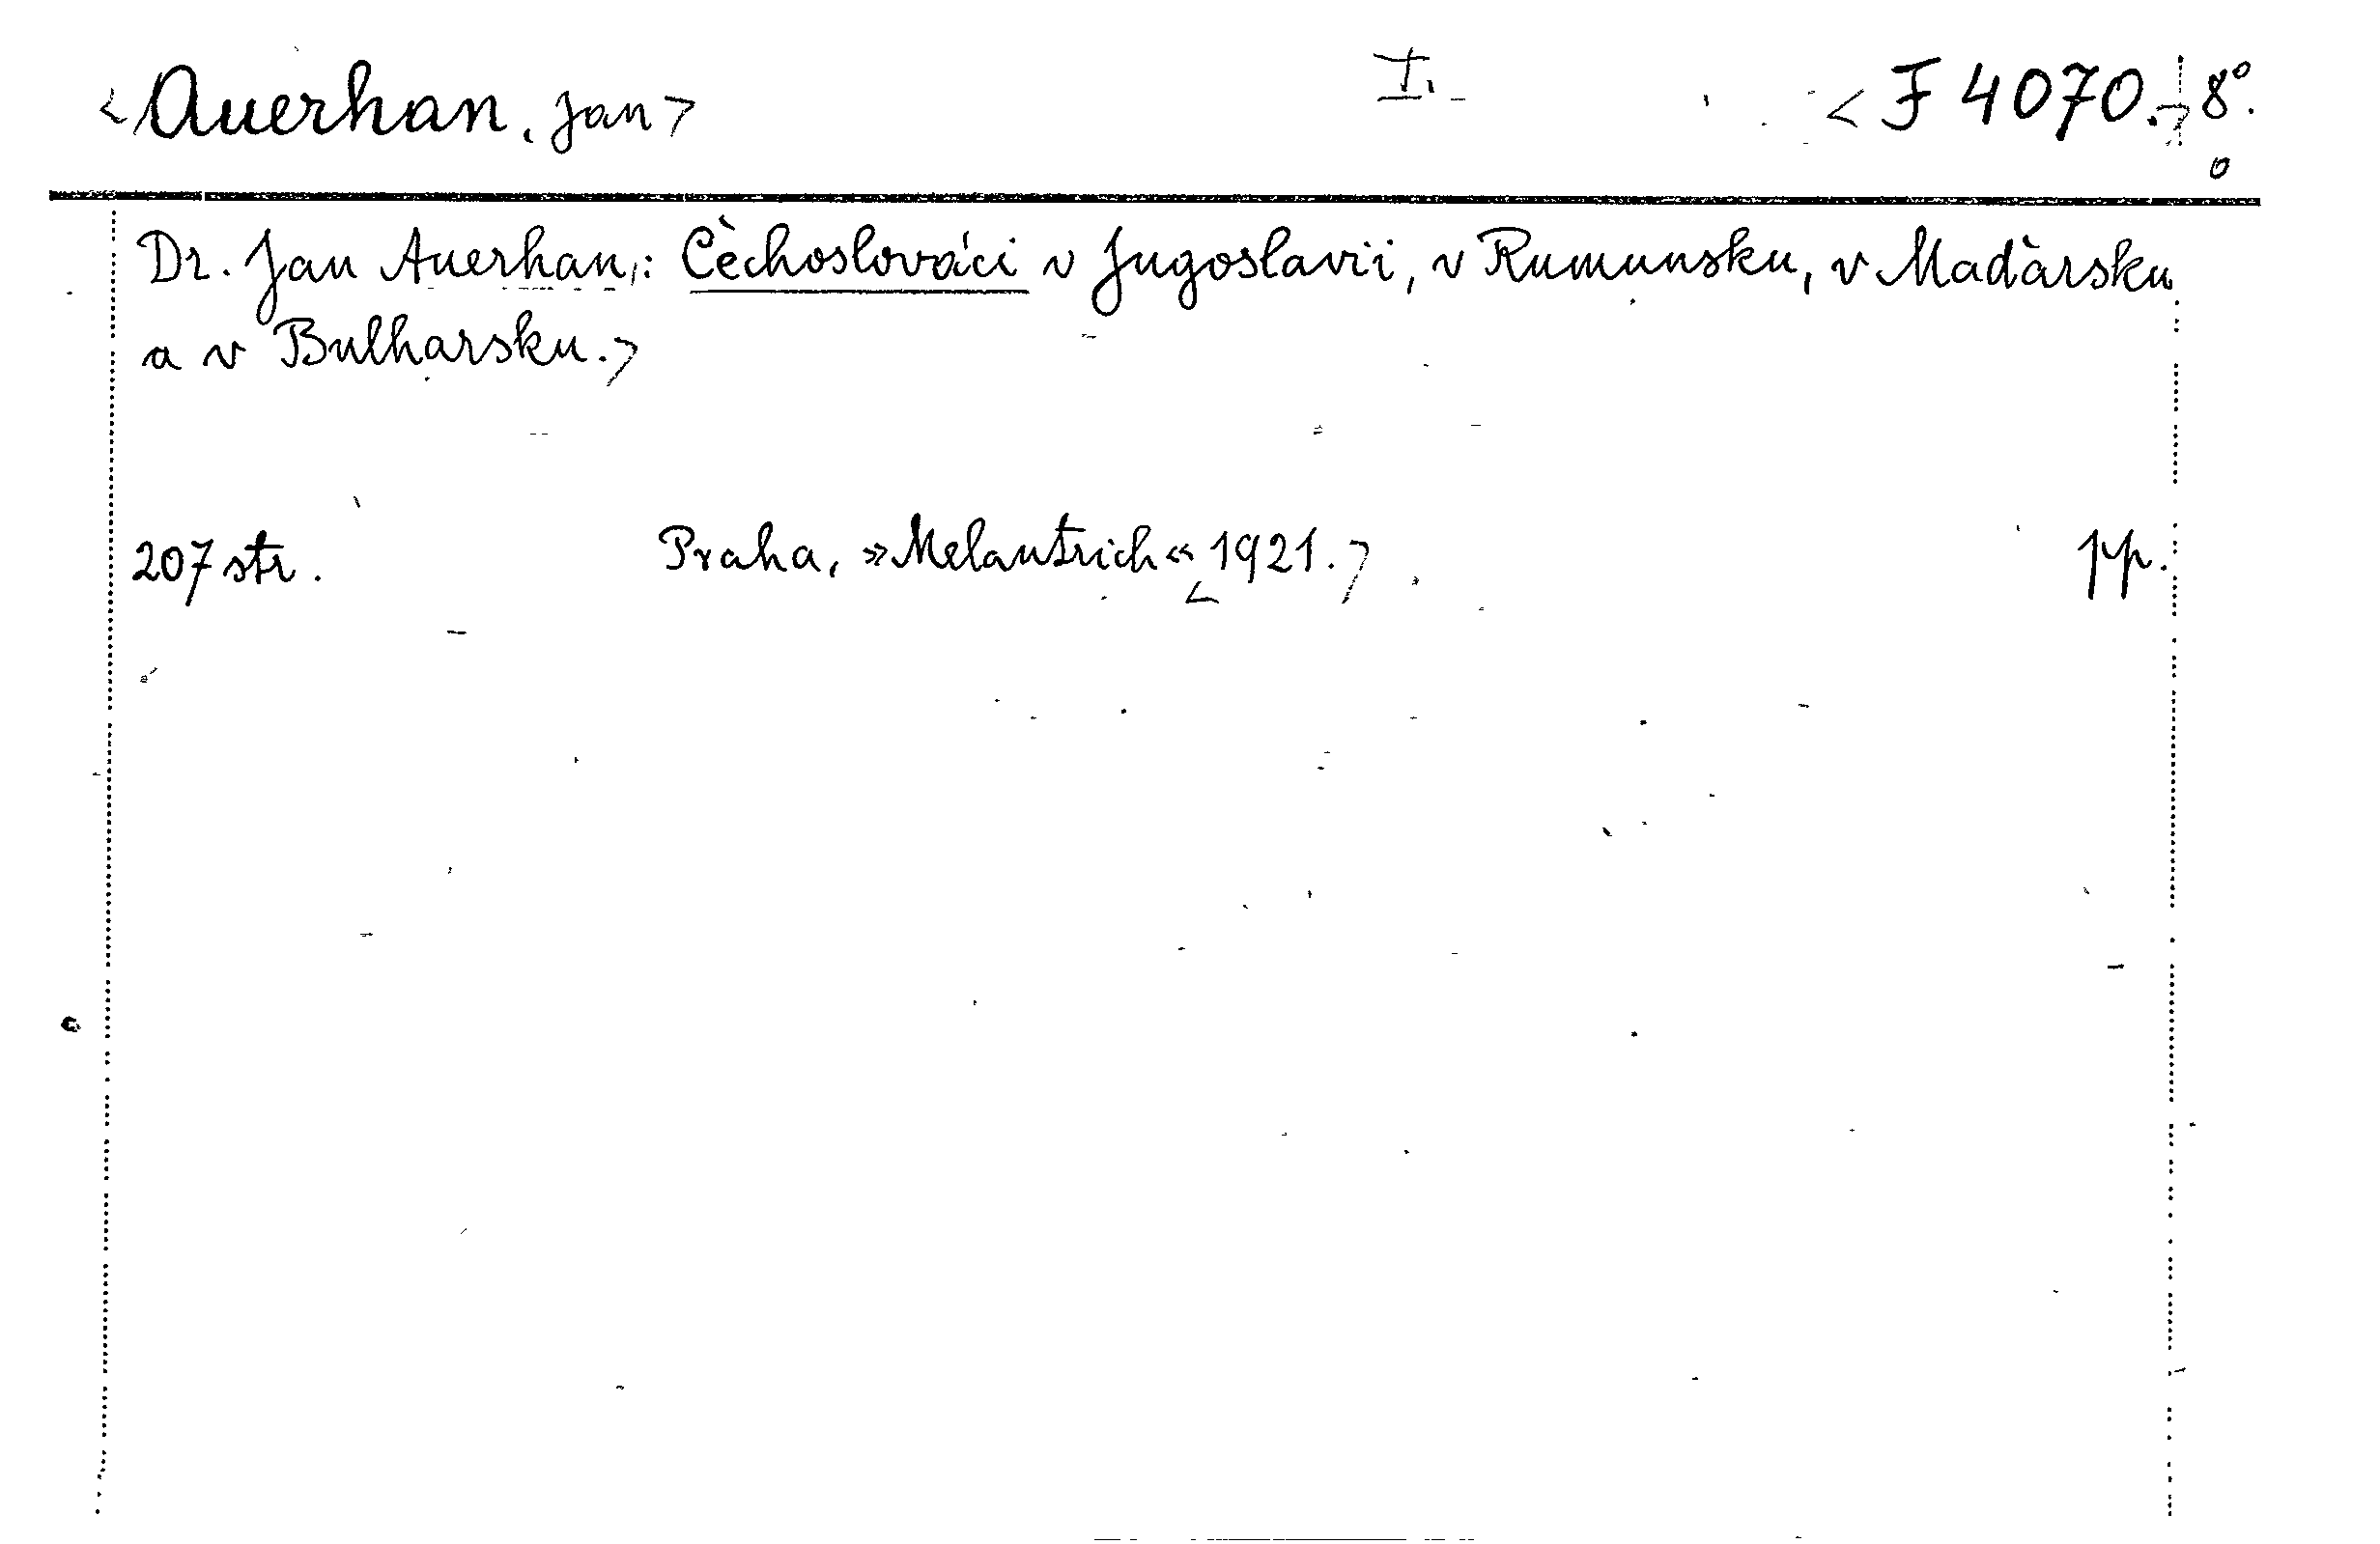 <Auerhan, Jan> I. <F 4070.> 8°.
Dr. Jan Auerhan,: Čèchoslováci v Jugoslavii, v Rumunsku, v Maďarsku
a v Bulharsku.>
207 str. Praha, »Melantrich« <1921.> pp.